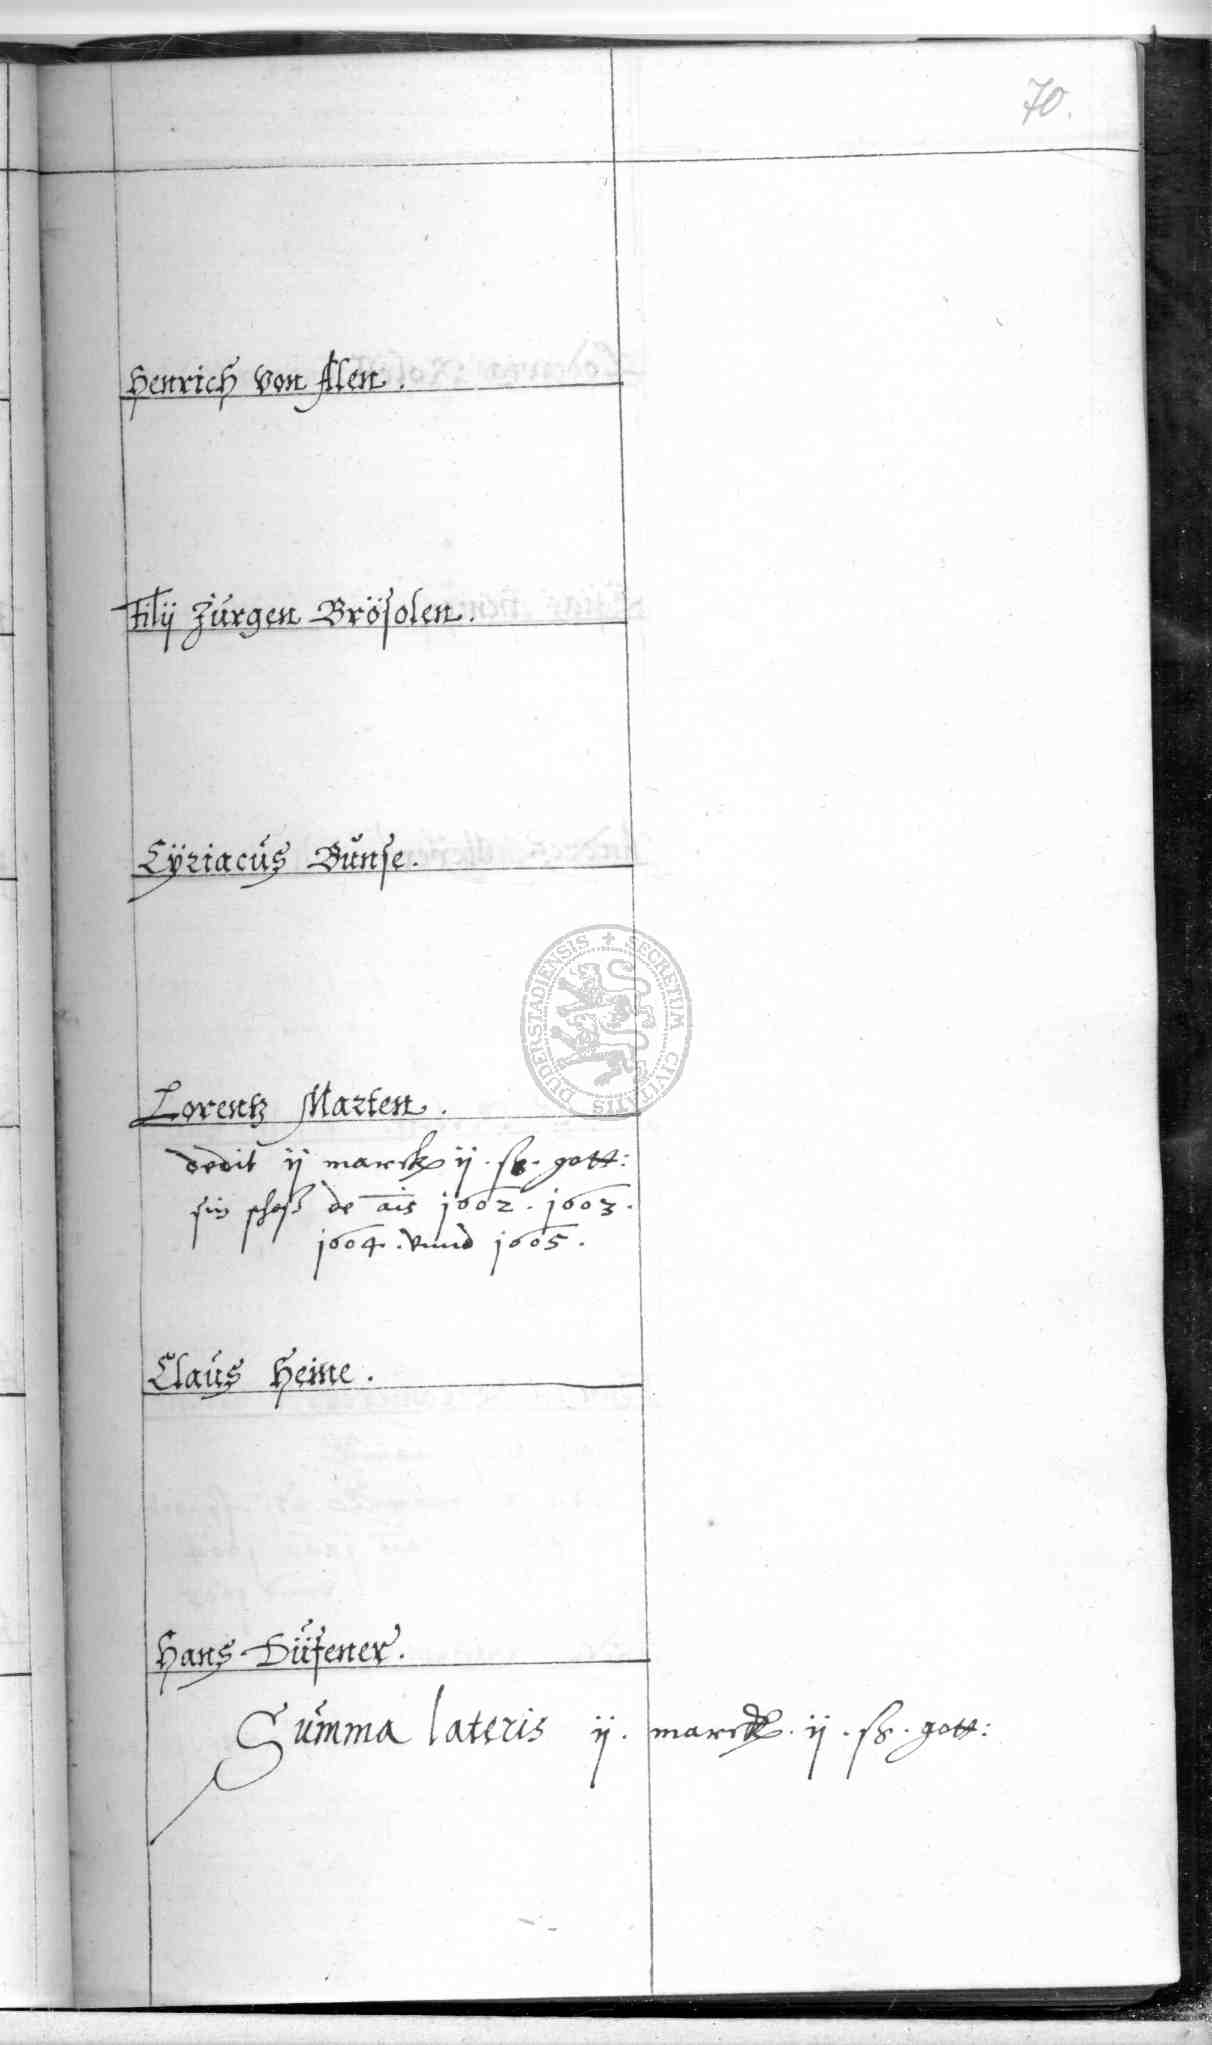 70.
Henrich von Alen.
Filij Jürgen Brösolen.
Cÿriacus Bunse.
DUDERSTADIENSIS + SECRETUM CIVITATIS
Lorentz Marten.
dedit ij marck ij. sz. gott:
sin schoß de ais 1602. 1603.
1604. vnnd 1605.
Claus Heine.
Hans Düfener.
Summa lateris ij. marck. ij. sz. gott: